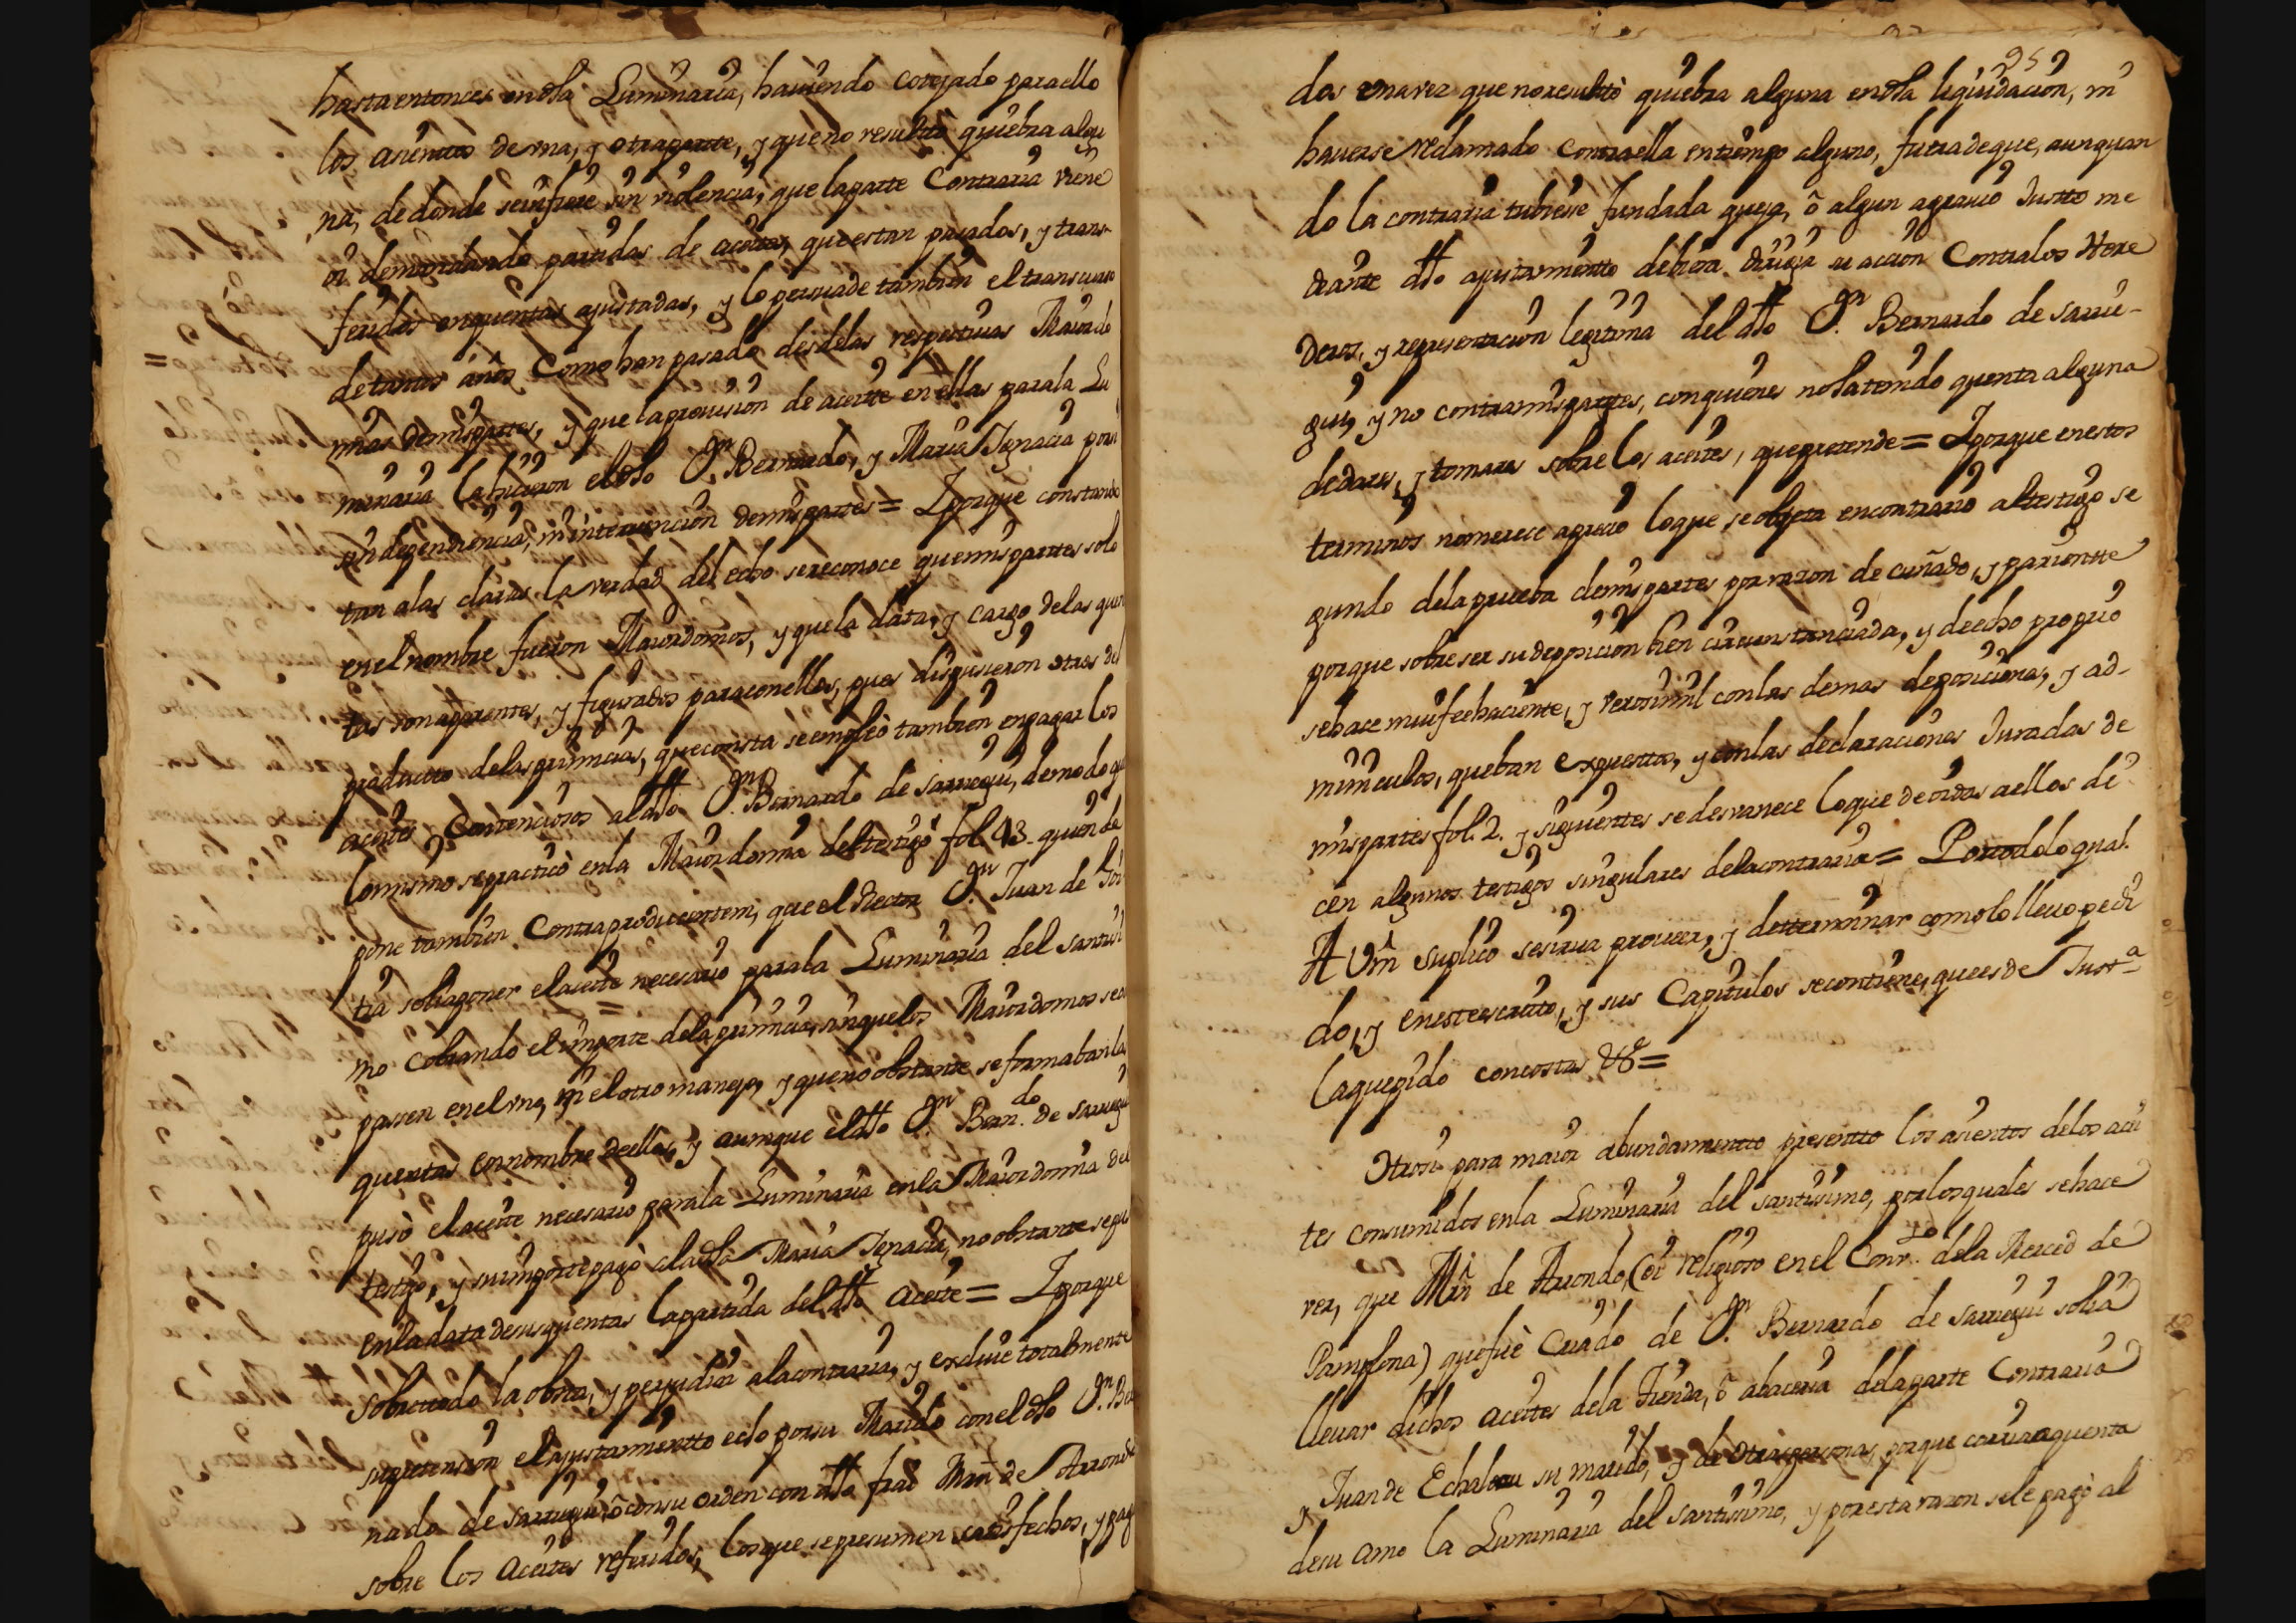 hasta entonces en dha Luminaria, haviendo cotejado para ello
los asientos de una, y otra parte, y que no resultò quiebra algu
na, de donde se infiere sin violencia, que la parte Contraria viene
oi demandando partidas de aceites, que estan pasados, y trans-
feridos en quentas ajustadas, y lo persuade tambien el transcurso
de tantos años Como han pasado desde las respectivas Maiordo
mias de mis partes, y que la provision de aceite en ellas para la Lu
minaria la hicieron el dho Dn. Bernardo, y Maria Ignacia por si
sin dependencia, ni intervencion de mis partes = Y porque constando
tan a las claras la verdad del echo se reconoce que mis partes solo
en el nombre fueron Maiordomos, y que la data, y cargo de las quen
tas son aparentes, y figurados para con ellos, pues dispusieron otros del
producto de las primicias, que consta se empleò tambien en pagar los
aceites Contenciosos al dho Dn. Bernardo de Sarrigui, de modo que
lo mismo se practicò en la Maiordomia del testigo fol. 43. quien de
pone tambien Contraproducentem, que el Rector Dn. Juan de Goi
tia solia poner el aceite necesario para la Luminaria del Santisi
mo Cobrando el importe de la primicia, sin que los Maiordomos se o
pasen en el uno, ni el otro manejo, y que no obstante se formaban las
quentas en nombre de ellos, y aunque el dho Dn. Bern.do de Sarrigui
puso el aceite necesario para la Luminaria en la Maiordomia del
testigo, y su importe pagò a la dha Maria Ignacia, no obstante se pu
en la data de sus quentas la partida del dho aceite = Y porque
sobre todo la obsta, y perjudica a la contraria, y exclúie totalmente
su pretension el ajustamiento echo por su Marido con el dho Dn. Ber
nardo de Sarrigui, ò con su orden con dho frai Mrn de Arrondo
sobre los Aceites referidos, los que se presumen satisfechos, y paga
95
dos una vez que no resultò quiebra alguna en dha liquidacion, ni
haverse reclamado Contra ella en tiempo alguno, fuera de que, aunquan
do la contraria tubiesse fundada queja, ò algun agravio Justto me
diante dho ajustamientto debiera dirigir su accion Contra los Here
deros, y representacion legitima del dho Dn. Bernardo de Sarri-
gui, y no contra mis partes, con quienes no ha tenido quenta alguna
de dares, y tomares sobre los aceites, que pretende = Y porque en estos
terminos no merece aprecio lo que se objeta en contrario al testigo se
gundo de la prueba de mis partes por razon de cuñado, y parientte
porque sobre ser su deposicion bien circunstanciada, y de echo propio
se hace mui fee haciente, y verosimil con las demas deposiciones, y ad-
miniculos, que ban expuestos, y con las declaraciones Juradas de
mis partes fol. 2. y siguientes se desvanece lo que de oidas a ellos di
cen algunos testigos singulares de la contraria = Por todo lo qual.
A Vm suplico se sirva proveer, y determinar como lo llevo pedi
do, y en este escrito, y sus Capitulos se contiene, que es de Just.a
la que pido con costas &c =
Otrosi para maior abundamientto presentto los asientos de los acei
tes consumidos en la Luminaria del Santisimo, por los quales se hace
ver, que Mrn de Arrondo (oi religioso en el Conv.to de la Merced de
Pamplona) que fuè Criado de Dn. Bernardo de Sarrigui solia
llevar dichos Aceites de la Tienda, ò abaceria de la parte Contraria
y Juan de su marido, y de otras personas, porque corria a quenta
de su amo la Luminaria del Santisimo, y por esta razon se le pagò al